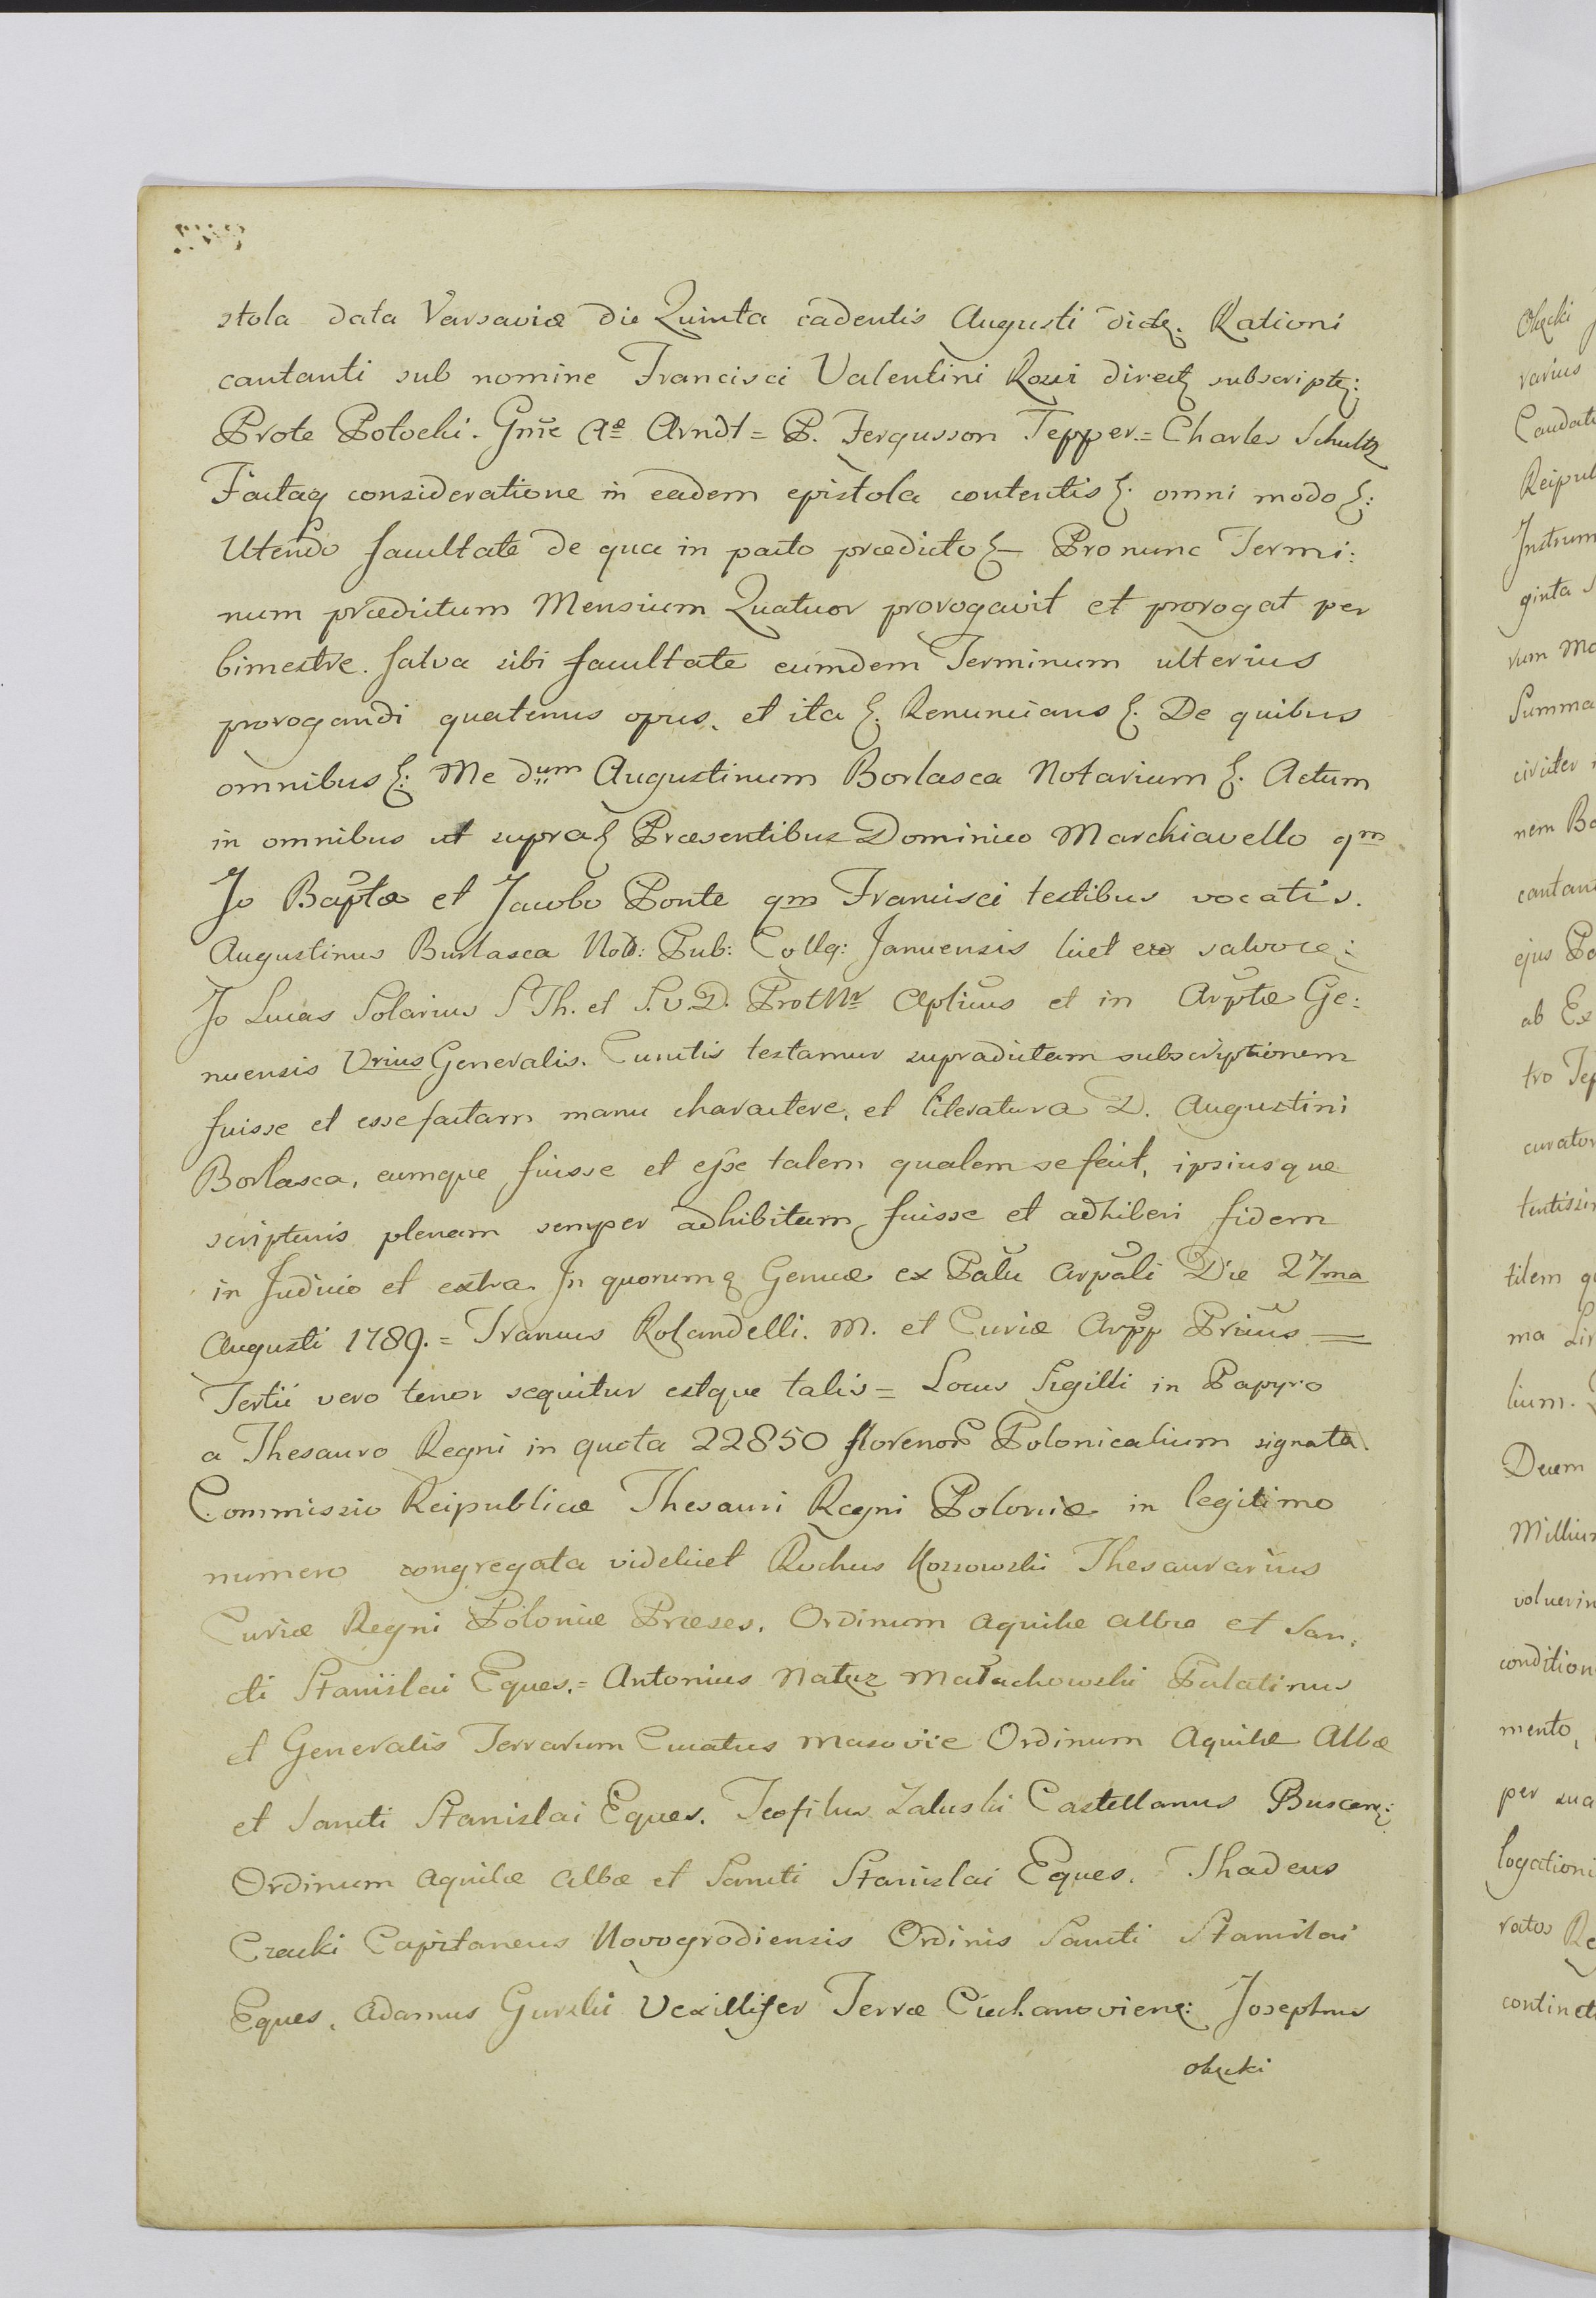 stola data Varsaviæ die Quinta cadentis Augusti dictæ. Rationi
cantanti sub nomine Francisci Valentini Rossi direct: subscript:
Prote Potocki. Gme Ae Arndt = P. Fergusson Tepper = Charles Schultz
Factaq consideratione in eadem epistola contentis &. omni modo &:
Utendo facultate de qua in pacto prædicto & Pro nunc Termi:
num prædictum Mensium Quatuor prorogavit et prorogat per
bimestre. salva sibi facultate eumdem Terminum ulterius
prorogandi quatenus opus, et ita &. Renuncians &. De quibus
omnibus &: Me dum Augustinum Borlasca Notarium &. Actum
in omnibus ut supra & Præsentibus Dominico Marchiavello qm
Jo Baptæ et Jacobo Ponte qm Francisci testibus vocatis.
Augustinus Burlasca Not: Pub: Collg: Januensis licet salvo
Jo Lucas Solarius S Th. et J.U.D. Prot Nr Aplicus et in Arptæ Ge:
nuensis Vrius Generalis. Cunctis testamur supradictam subscriptionem
fuisse et esse factam manu charactere, et literatura D. Augustini
Borlasca, eumque fuisse et esse talem qualem se facit, ipsiusque
scripturis plenam semper adhibitam fuisse et adhiberi fidem
in Judicio et extra. In quorum & Genuæ ex Palu Arpali Die 27ma
Augusti 1789. = Francus Rolandelli. M. et Curiæ Arpp Prius =
Tertii vero tenor sequitur estque talis = Locus Sigilli in Papyro
a Thesauro Regni in quota 22850 florenor Polonicalium signata.
Commissio Reipublicæ Thesauri Regni Poloniæ in legitimo
numero congregata videlicet Rochus Kossowski Thesaurarius
Curiæ Regni Poloniæ Præses. Ordinum Aquilæ Albæ et San:
cti Stanislai Eques. = Antonius Małachowski Palatinus
et Generalis Terrarum Ducatus Masoviæ Ordinum Aquilæ Albæ
et Sancti Stanislai Eques. Teofilus Załuski Castellanus Buscen:
Ordinum Aquilæ Albæ et Sancti Stanislai Eques. Thadeus
Czacki Capitaneus Novogrodiensis Ordinis Sancti Stanislai
Eques. Adamus Gurski Vexillifer Terræ Ciechanovien: Josephus
Okęcki